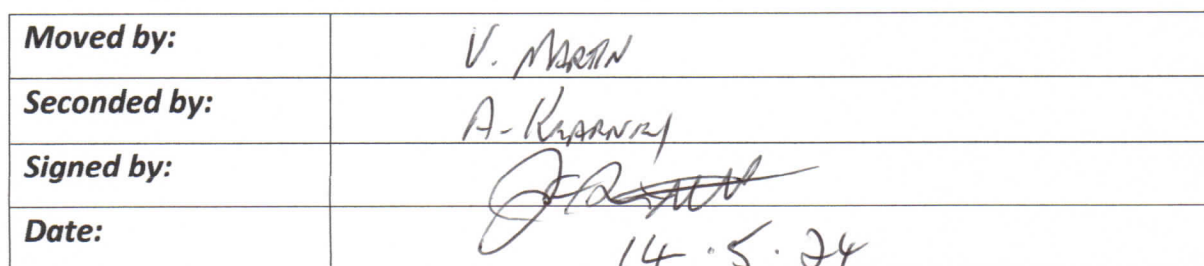 Moved by: V. MARTIN
Seconded by: A. KEARNEY
Signed by:
Date: 14.5.24